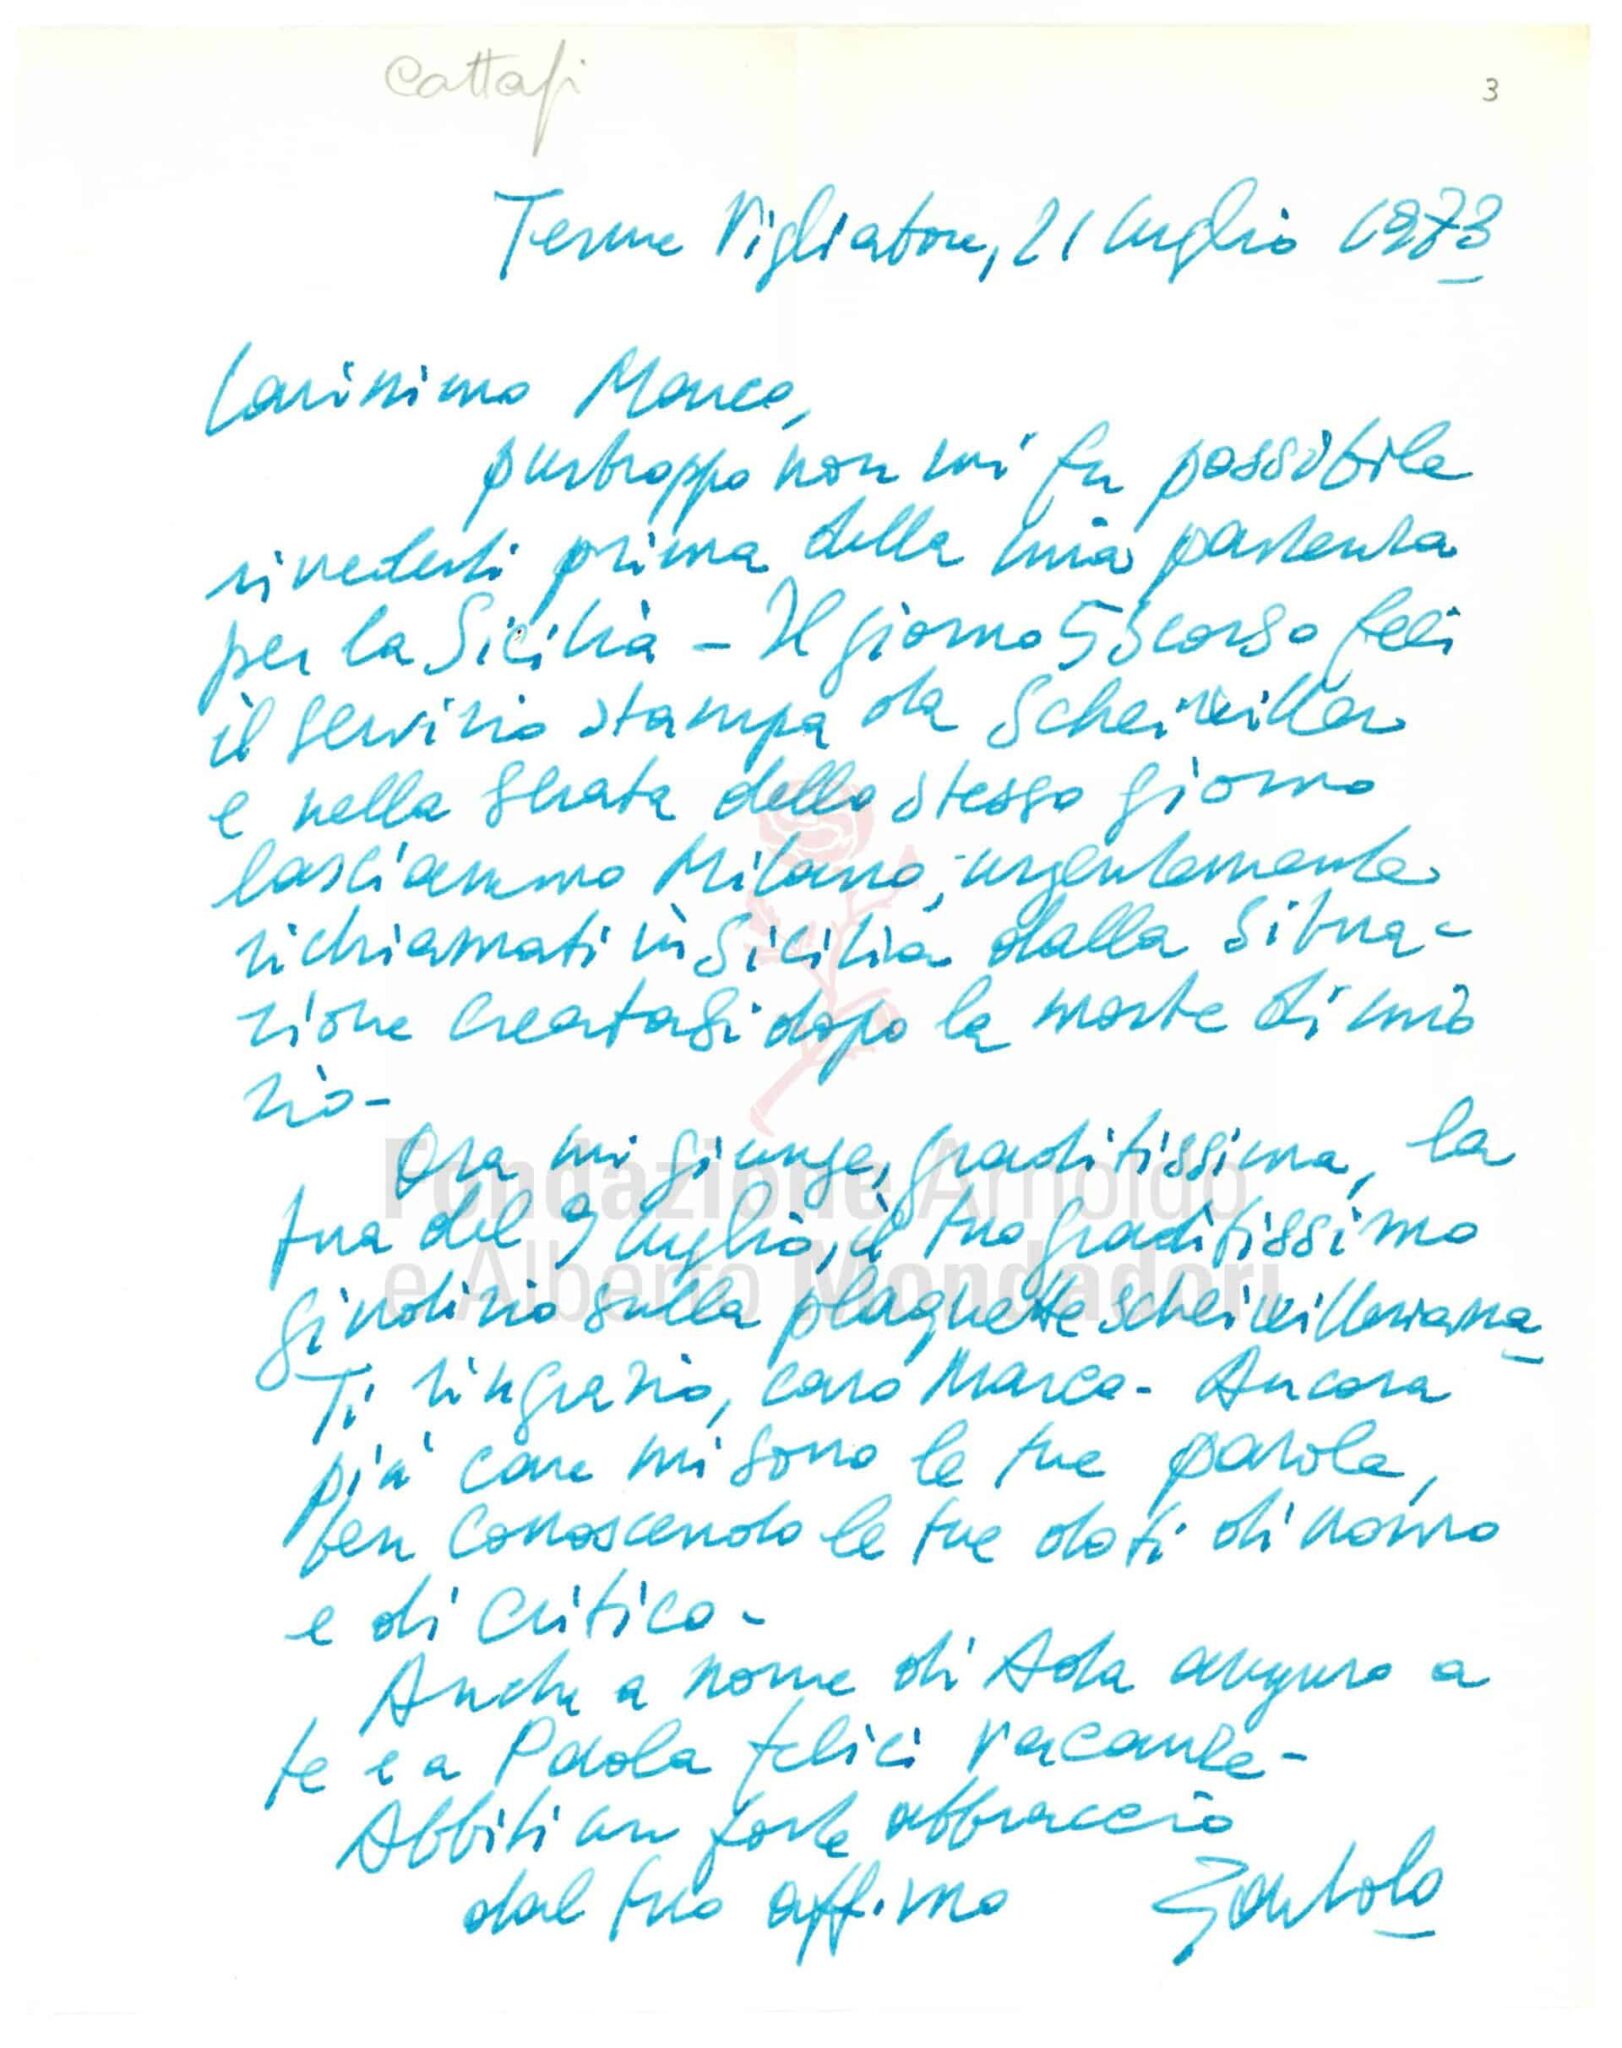 Cattafi
3
Terme Vigliatore, 21 luglio 1973
Carissimo Marco,
purtroppo non mi fu possibile
rivederti prima della mia partenza
per la Sicilia – Il giorno 5 scorso feci
il servizio stampa da Scheiwiller
e nella serata dello stesso giorno
lasciammo Milano, urgentemente
richiamati in Sicilia dalla situa-
zione creatasi dopo la morte di mio
zio –
Ora mi giunge, graditissima, la
tua del 9 luglio, il tuo graditissimo
giudizio sulla plaquette scheiwilleriana –
Ti ringrazio, caro Marco – Ancora
più care mi sono le tue parole,
ben conoscendo le tue doti di uomo
e di critico –
Anche a nome di Ada auguro a
te e a Paola felici vacanze –
Abbiti un forte abbraccio
dal tuo aff.imo Bartolo
Fondazione Arnoldo
e Alberto Mondadori